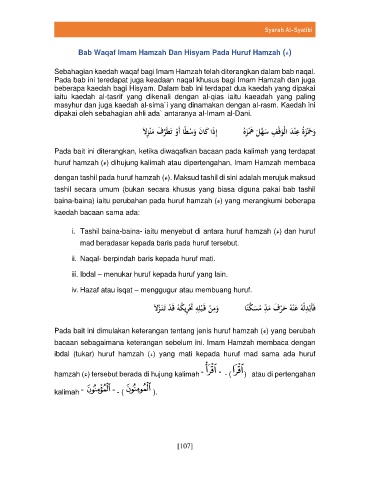 Syarah Al-Syatibi
Bab Waqaf Imam Hamzah Dan Hisyam Pada Huruf Hamzah (ء)
Sebahagian kaedah waqaf bagi Imam Hamzah telah diterangkan dalam bab naqal.
Pada bab ini teredapat juga keadaan naqal khusus bagi Imam Hamzah dan juga
beberapa kaedah bagi Hisyam. Dalam bab ini terdapat dua kaedah yang dipakai
iaitu kaedah al-tasrif yang dikenali dengan al-qias iaitu kaeadah yang paling
masyhur dan juga kaedah al-sima`i yang dinamakan dengan al-rasm. Kaedah ini
dipakai oleh sebahagian ahli ada` antaranya al-Imam al-Dani.
وَحَمْزَةُ عِنْدَ الْوَقْفِ سَهَّلَ هَمْزَهُ إِذَا كَانَ وَسْطًا أَوْ تَطَرَّفَ مَنْزِلَا
Pada bait ini diterangkan, ketika diwaqafkan bacaan pada kalimah yang terdapat
huruf hamzah (ء) dihujung kalimah atau dipertengahan, Imam Hamzah membaca
dengan tashil pada huruf hamzah (ء). Maksud tashil di sini adalah merujuk maksud
tashil secara umum (bukan secara khusus yang biasa diguna pakai bab tashil
baina-baina) iaitu perubahan pada huruf hamzah (ء) yang merangkumi beberapa
kaedah bacaan sama ada:
i. Tashil baina-baina- iaitu menyebut di antara huruf hamzah (ء) dan huruf
mad beradasar kepada baris pada huruf tersebut.
ii. Naqal- berpindah baris kepada huruf mati.
iii. Ibdal – menukar huruf kepada huruf yang lain.
iv. Hazaf atau isqat – menggugur atau membuang huruf.
فَأَبْدِلْهُ عَنْهُ حَرْفَ مَدٍّ مُسَكَّنًا وَمِنْ قَبْلِهِ تَحْرِيكُهُ قَدْ تَنَزَّلَا
Pada bait ini dimulakan keterangan tentang jenis huruf hamzah (ء) yang berubah
bacaan sebagaimana keterangan sebelum ini. Imam Hamzah membaca dengan
ibdal (tukar) huruf hamzah (ء) yang mati kepada huruf mad sama ada huruf
hamzah (ء) tersebut berada di hujung kalimah " ٱقْرَأْ " - ( ٱقْرَا ) atau di pertengahan
kalimah " ٱلْمُؤْمِنُونَ " - ( ٱلْمُومِنُونَ ).
[107]